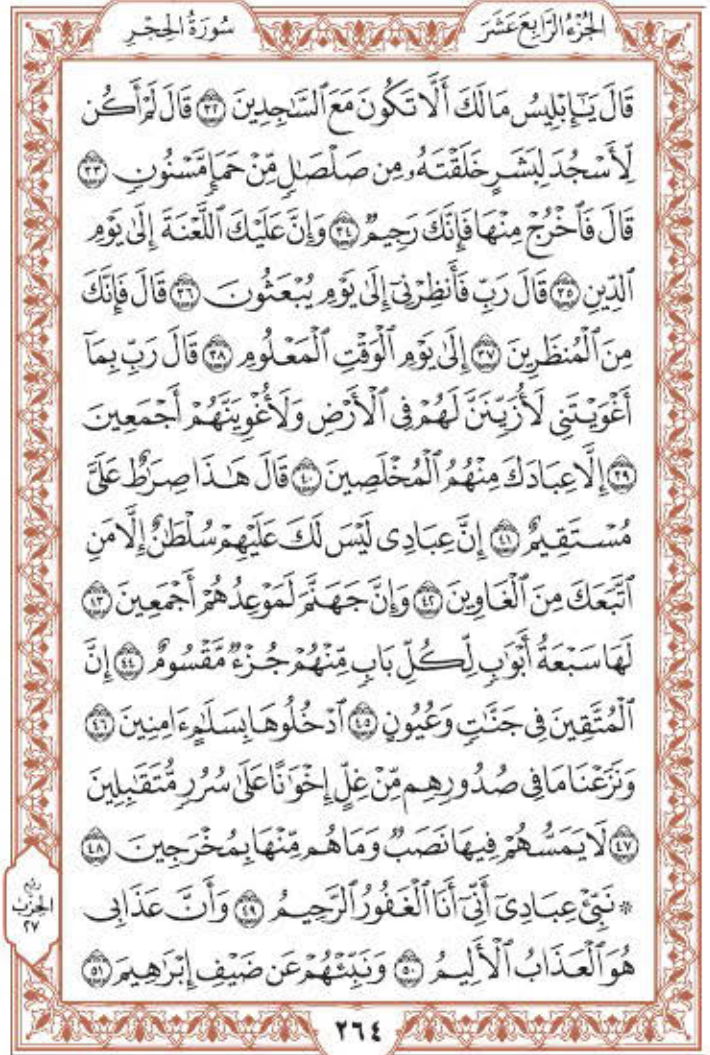 سُورَةُ الحِجْرِ
الجُزْءُ الرَّابِعَ عَشَرَ
قَالَ يَٰٓإِبۡلِيسُ مَا لَكَ أَلَّا تَكُونَ مَعَ ٱلسَّٰجِدِينَ ٣٢ قَالَ لَمۡ أَكُن
لِّأَسۡجُدَ لِبَشَرٍ خَلَقۡتَهُۥ مِن صَلۡصَٰلٖ مِّنۡ حَمَإٖ مَّسۡنُونٖ ٣٣
قَالَ فَٱخۡرُجۡ مِنۡهَا فَإِنَّكَ رَجِيمٞ ٣٤ وَإِنَّ عَلَيۡكَ ٱللَّعۡنَةَ إِلَىٰ يَوۡمِ
ٱلدِّينِ ٣٥ قَالَ رَبِّ فَأَنظِرۡنِيٓ إِلَىٰ يَوۡمِ يُبۡعَثُونَ ٣٦ قَالَ فَإِنَّكَ
مِنَ ٱلۡمُنظَرِينَ ٣٧ إِلَىٰ يَوۡمِ ٱلۡوَقۡتِ ٱلۡمَعۡلُومِ ٣٨ قَالَ رَبِّ بِمَآ
أَغۡوَيۡتَنِي لَأُزَيِّنَنَّ لَهُمۡ فِي ٱلۡأَرۡضِ وَلَأُغۡوِيَنَّهُمۡ أَجۡمَعِينَ
٣٩ إِلَّا عِبَادَكَ مِنۡهُمُ ٱلۡمُخۡلَصِينَ ٤٠ قَالَ هَٰذَا صِرَٰطٌ عَلَيَّ
مُسۡتَقِيمٌ ٤١ إِنَّ عِبَادِي لَيۡسَ لَكَ عَلَيۡهِمۡ سُلۡطَٰنٌ إِلَّا مَنِ
ٱتَّبَعَكَ مِنَ ٱلۡغَاوِينَ ٤٢ وَإِنَّ جَهَنَّمَ لَمَوۡعِدُهُمۡ أَجۡمَعِينَ ٤٣
لَهَا سَبۡعَةُ أَبۡوَٰبٖ لِّكُلِّ بَابٖ مِّنۡهُمۡ جُزۡءٞ مَّقۡسُومٌ ٤٤ إِنَّ
ٱلۡمُتَّقِينَ فِي جَنَّٰتٖ وَعُيُونٍ ٤٥ ٱدۡخُلُوهَا بِسَلَٰمٍ ءَامِنِينَ ٤٦
وَنَزَعۡنَا مَا فِي صُدُورِهِم مِّنۡ غِلٍّ إِخۡوَٰنًا عَلَىٰ سُرُرٖ مُّتَقَٰبِلِينَ
٤٧ لَا يَمَسُّهُمۡ فِيهَا نَصَبٞ وَمَا هُم مِّنۡهَا بِمُخۡرَجِينَ ٤٨
۞ نَبِّئۡ عِبَادِيٓ أَنِّيٓ أَنَا ٱلۡغَفُورُ ٱلرَّحِيمُ ٤٩ وَأَنَّ عَذَابِي
هُوَ ٱلۡعَذَابُ ٱلۡأَلِيمُ ٥٠ وَنَبِّئۡهُمۡ عَن ضَيۡفِ إِبۡرَٰهِيمَ ٥١
ربع
الحزب
٢٧
٢٦٤